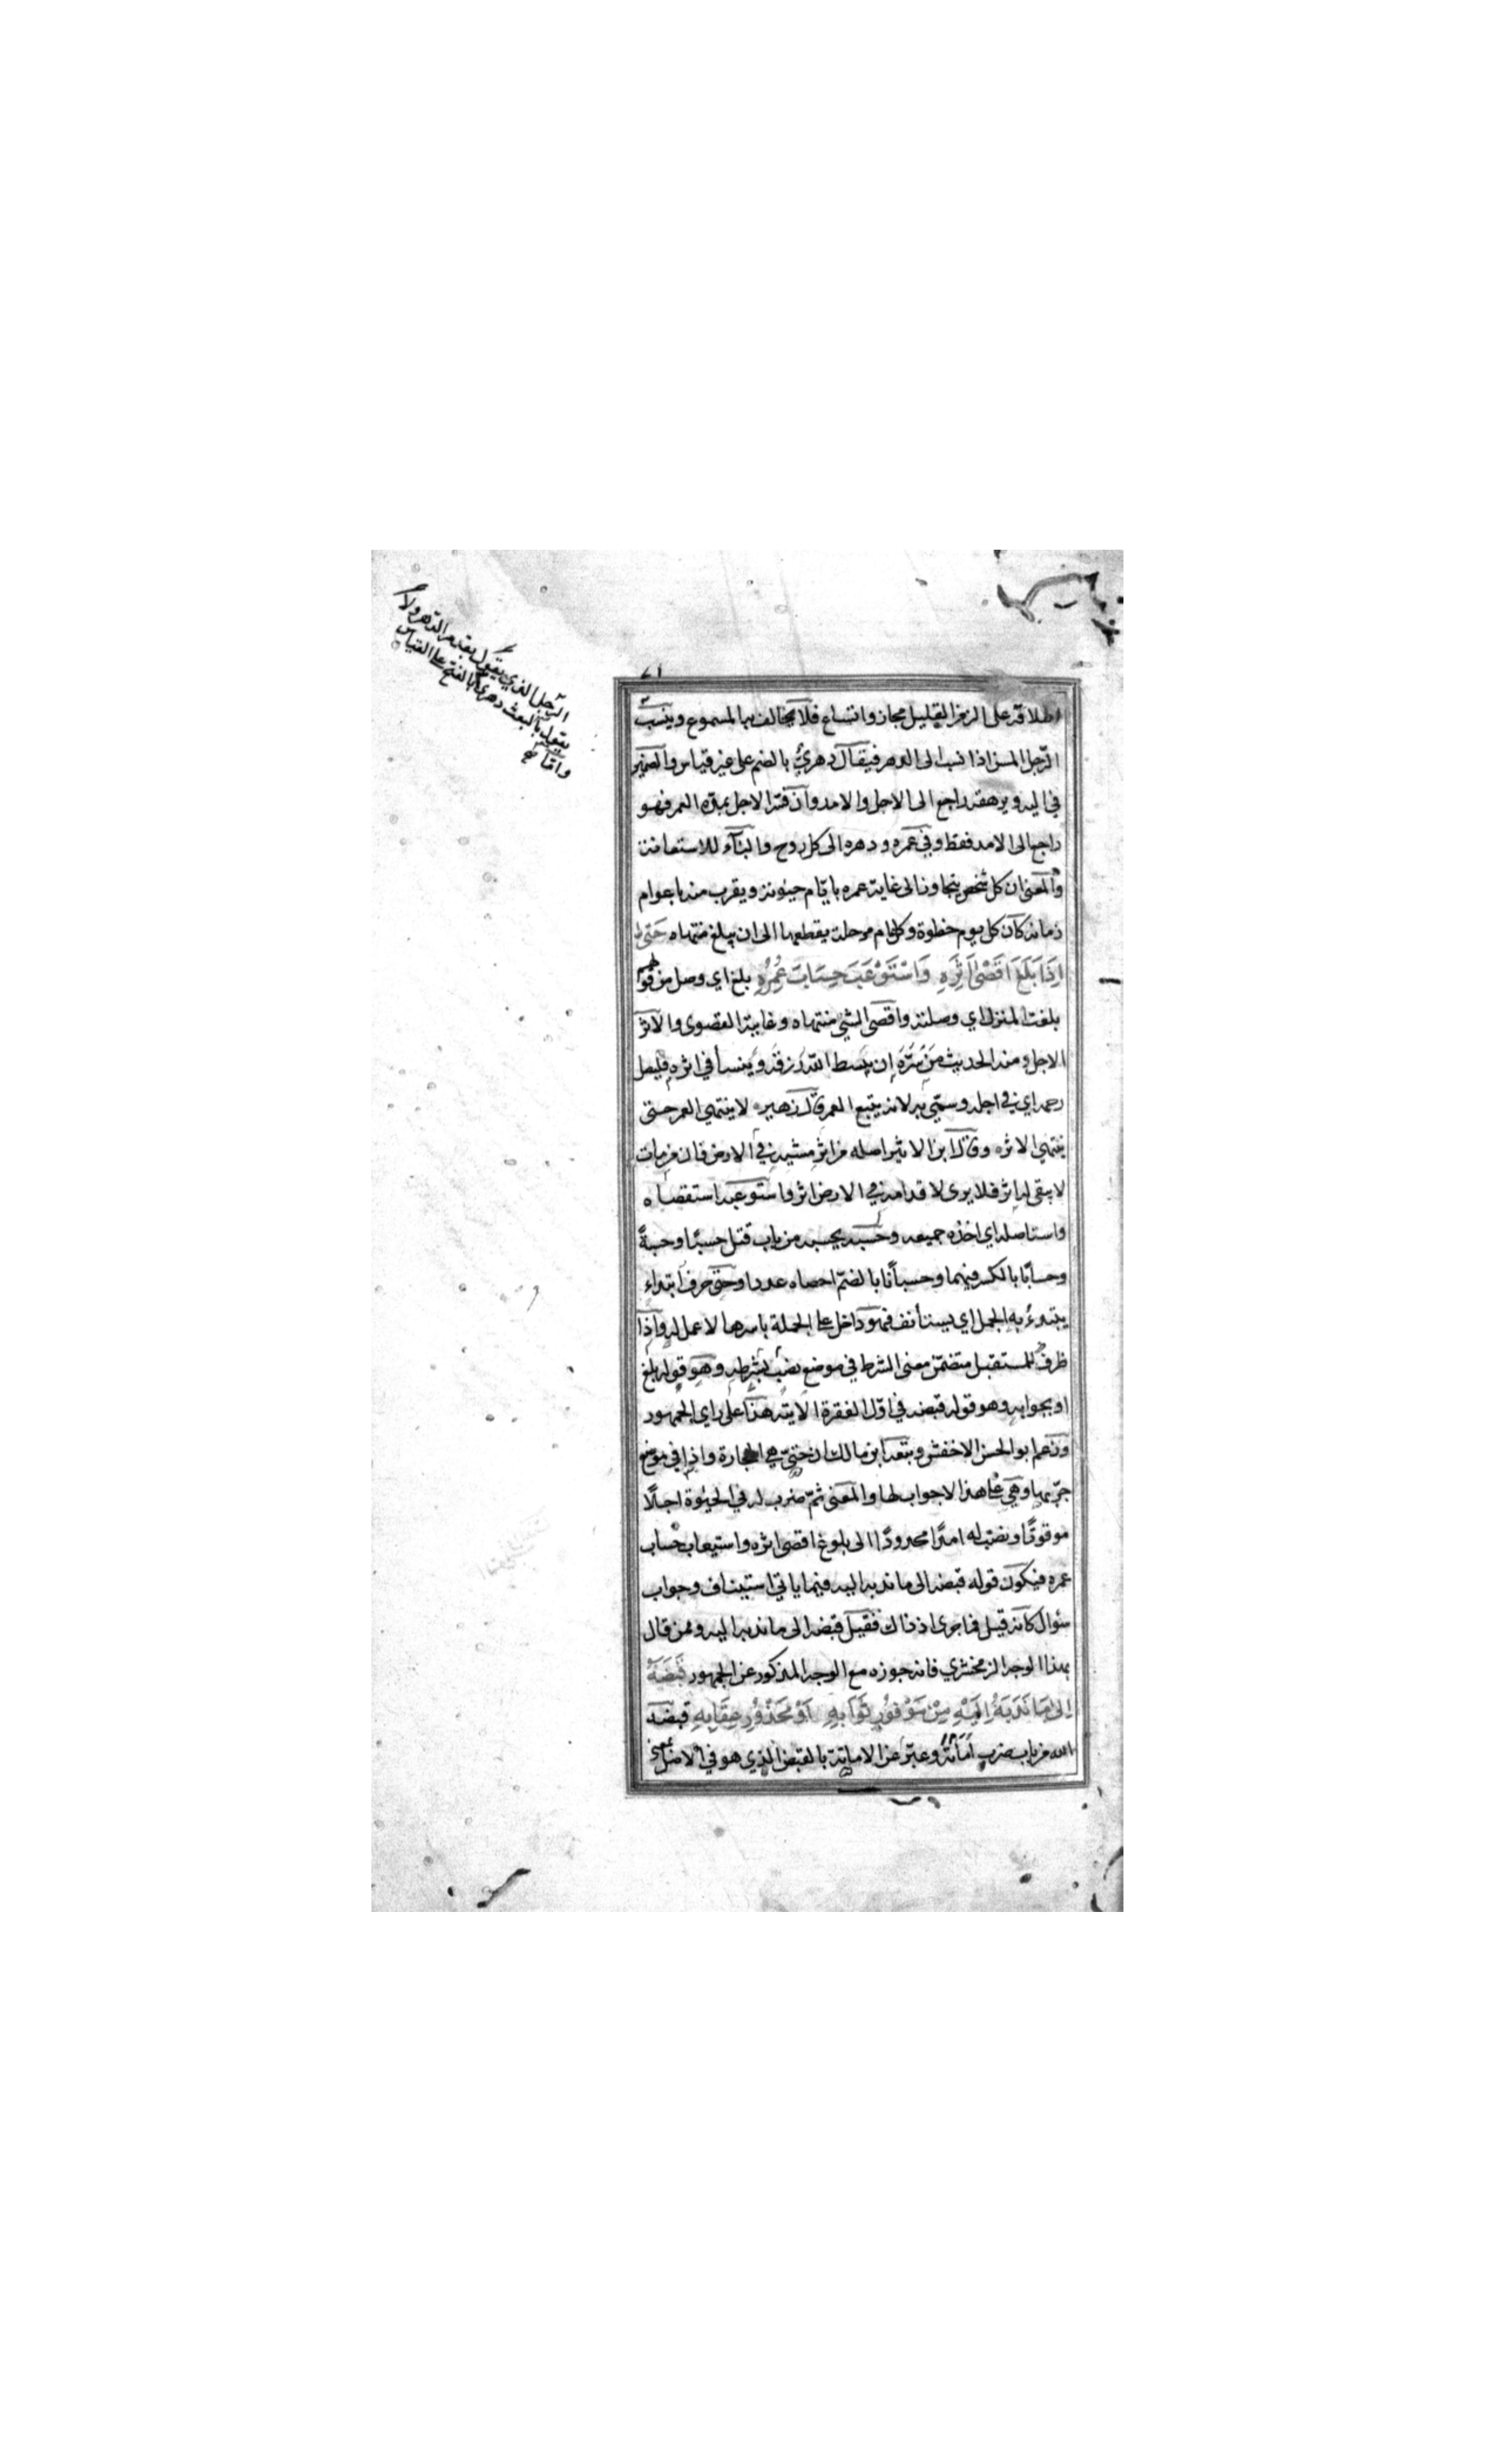 اطلاقه على الزمن القليل مجاز واتساع فلا يخالف به المسموع وينسب
الرّجل المسن اذا نسب الى الدهر فيقال دهريٌ بالضم على غير قياس والضمير
في اليه ويرهقه راجع الى الاجل والامد وان فسّر الاجل بمدّة العمر فهو
راجع الى الامد فقط وفي عمره ودهره الى كل روح والبآء للاستعانة
والمعنى ان كل شخص يتجاوز الى غاية عمره بايّام حيوته ويقرب منه باعوام
زمانه كان كل يوم خطوة وكل عام مرحلة يقطعها الى ان يبلغ منتهاه حَتّى
اِذَا بَلَغَ اَقْصىٰ اَثَرِهِ وَاسْتَوْعَبَ حِسَابَ عُمُرِهِ بلغ اي وصل من قولهم
بلغت المنزل اي وصلته واقصى الشئ منتهاه وغايته القصوى والاثر
الاجل ومنه الحديث مَن سَرَّه ان يبسط اللّه رزقه وينسأ في اثره فليصل
رحمه اي في اجله وسمّي به لانه يتبع العمر قال زهير لا ينتهي العمر حتى
ينتهي الاثر وقال ابن الاثير اصله من اثر مشيه في الارض فان من مات
لا يبقى له اثر فلا يرى لاقدامه في الارض اثر واستوعبه استقصاه
واستاصله اي اخذه جميعه وحسبه يحسبه من باب قتل حسبًا وحسبةً
وحسابًا بالكسر فيهما وحسبانًا بالضمّ احصاه عددا وحتى حرف ابتداء
يبتدء به الجمل اي يستأنف فهو داخل على الجملة باسرها لا عمل له واذا
ظرف للمستقبل متضمّن معنى الشرط في موضع نصب بشرطه وهو قوله بلغ
او بجوابه وهو قوله قبضه في اوّل الفقرة الاٰتية هذا على راي الجمهور
وزعم ابو الحسن الاخفش وتبعه ابن مالك ان حتّى هي الجارة واذا في موضع
جرّ بها وهي على هذا لا جواب لها والمعنى ثمّ ضرب له في الحيٰوة اجلًا
موقوتًا ونصب له امدًا محدودًا الى بلوغ اقصى اثره واستيعاب حساب
عمره فيكون قوله قبضه الى ما ندبه اليه فيما ياتي استيناف وجواب
سؤال كانه قيل فما جرى اذ ذاك فقيل قبضه الى ما ندبه اليه وممن قال
بهذا الوجه الزمخشري فانه جوزه مع الوجه المذكور عن الجمهور قَبَضَهُ
اِلىٰ مَا نَدَبَهُ اِلَيْهِ مِنْ مَوْفُورِ ثَوَابِهِ اَوْ مَحْذُورِ عِقَابِهِ قبضه
اللّه من باب ضرب اَمَاتَهُ وعبّر عن الاماتة بالقبض الذي هو في الاصل بمعنى
واما
الرّجل الذي يقول بقدم الدّهر ولا
يقول بالبعث دهريٌ بالفتح على القياس